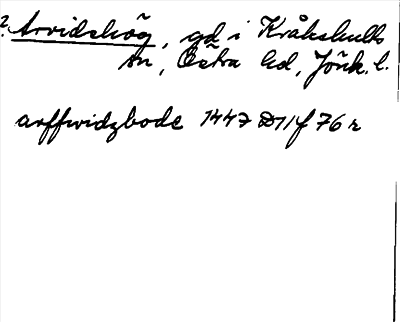 ? Arvidshög, gd i Kråkshults
sn, Östra hd, Jönk. l.
arffwidzbode 1447 D11 f 76 r